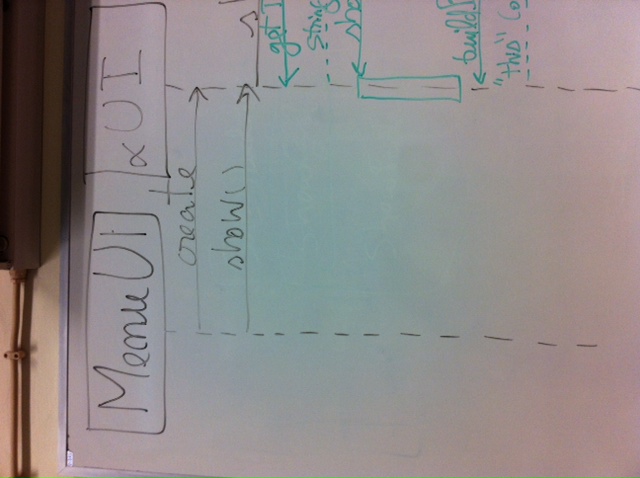 MenuUI
∝UI
create
show()
get
string
show
build
"this" (